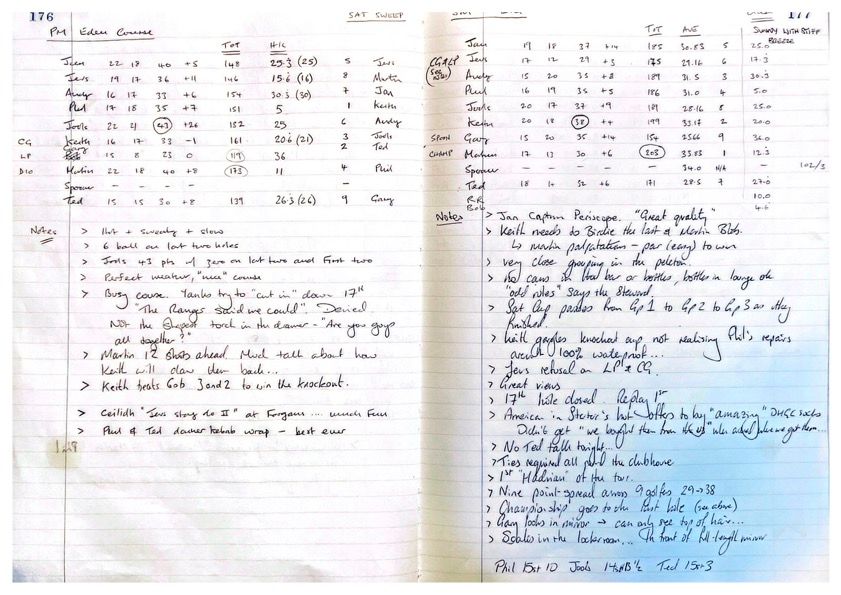 176
SAT SWEEP
PM Eden Course
TOT H/C
Juan 22 18 40 +5 148 25.3 (25) 5 Jevs
Jevs 19 17 36 +11 146 15.6 (16) 8 Martin
Andy 16 17 33 +6 154 30.3 (30) 7 Jan
Phil 17 18 35 +7 151 5 1 Keith
Jools 22 21 43 +26 152 25 6 Andy
CG Keith 16 17 33 -1 161 20.6 (21) 3 Jools
2 Ted
LP Gary 15 8 23 0 119 36
DIO Martin 22 18 40 +8 173 11 4 Phil
Spooner – – – – –
Ted 15 15 30 +8 139 26.3 (26) 9 Gary
Notes > Hot + sweaty + slow
> 6 ball on last two holes
> Jools 43 pts w/ zero on last two and first two
> Perfect weather, "nice" course
> Busy course. Yanks try to "cut in" down 17th
"The Ranger said we could". Denied
Not the sharpest torch in the drawer – "Are you guys
all together?"
> Martin 12 shots ahead. Much talk about how
Keith will claw them back...
> Keith beats Gob 3 and 2 to win the knockout.
> Ceilidh "Jevs stag do II" at Forgans .... much fun
> Phil & Ted doner kebab wrap – best ever
177
TOT AVE SUNNY WITH STIFF
BREEZE
Jan 19 18 37 +14 185 30.83 5 25.0
CG & LP Jevs 17 12 29 +3 175 29.16 6 17.3
(see notes) Andy 15 20 35 +8 189 31.5 3 30.3
Phil 16 19 35 +5 186 31.0 4 5.0
Jools 20 17 37 +9 189 28.16 8 25.0
Keith 20 18 38 +4 199 33.17 2 20.0
SPOON Gary 15 20 35 +14 154 25.66 9 36.0
CHAMP Martin 17 13 30 +6 203 33.83 1 12.3
Spooner – – – – 34.0 N/A – 102/3
Ted 18 14 32 +6 171 28.5 7 27.0
R.R. 10.0
Bob 4.6
Notes > Jan Captain Periscope. "Great quality"
> Keith needs to Birdie the last & Martin Blob.
↳ Martin palpitations – par (easy) to win
> very close grouping in the peleton.
> No cans in bar or bottles, bottles in lounge ok
"odd rules" says the Steward
> Sat Cup passes from Gp 1 to Gp 2 to Gp 3 as they
finished.
> Keith gargles knockout cup not realising Phil's repairs
aren't 100% waterproof...
> Jevs refusal on LP & CG.
> Great views
> 17th hole closed. Replay 1st
> American in Starter's hut offers to buy "amazing" DHGC socks
Didn't get "we bought them from the US" when asked where we got them...
> No Ted talk tonight...
> Ties required all round the clubhouse
> 1st "Hadrian" of the tour.
> Nine point-spread across 9 golfers 29→38
> Championship goes to the last hole (see above)
> Gary looks in mirror → can only see top of hair...
> Scales in the lockerroom... In front of full-length mirror
Phil 15st 10 Jools 14st 13½ Ted 15st 3